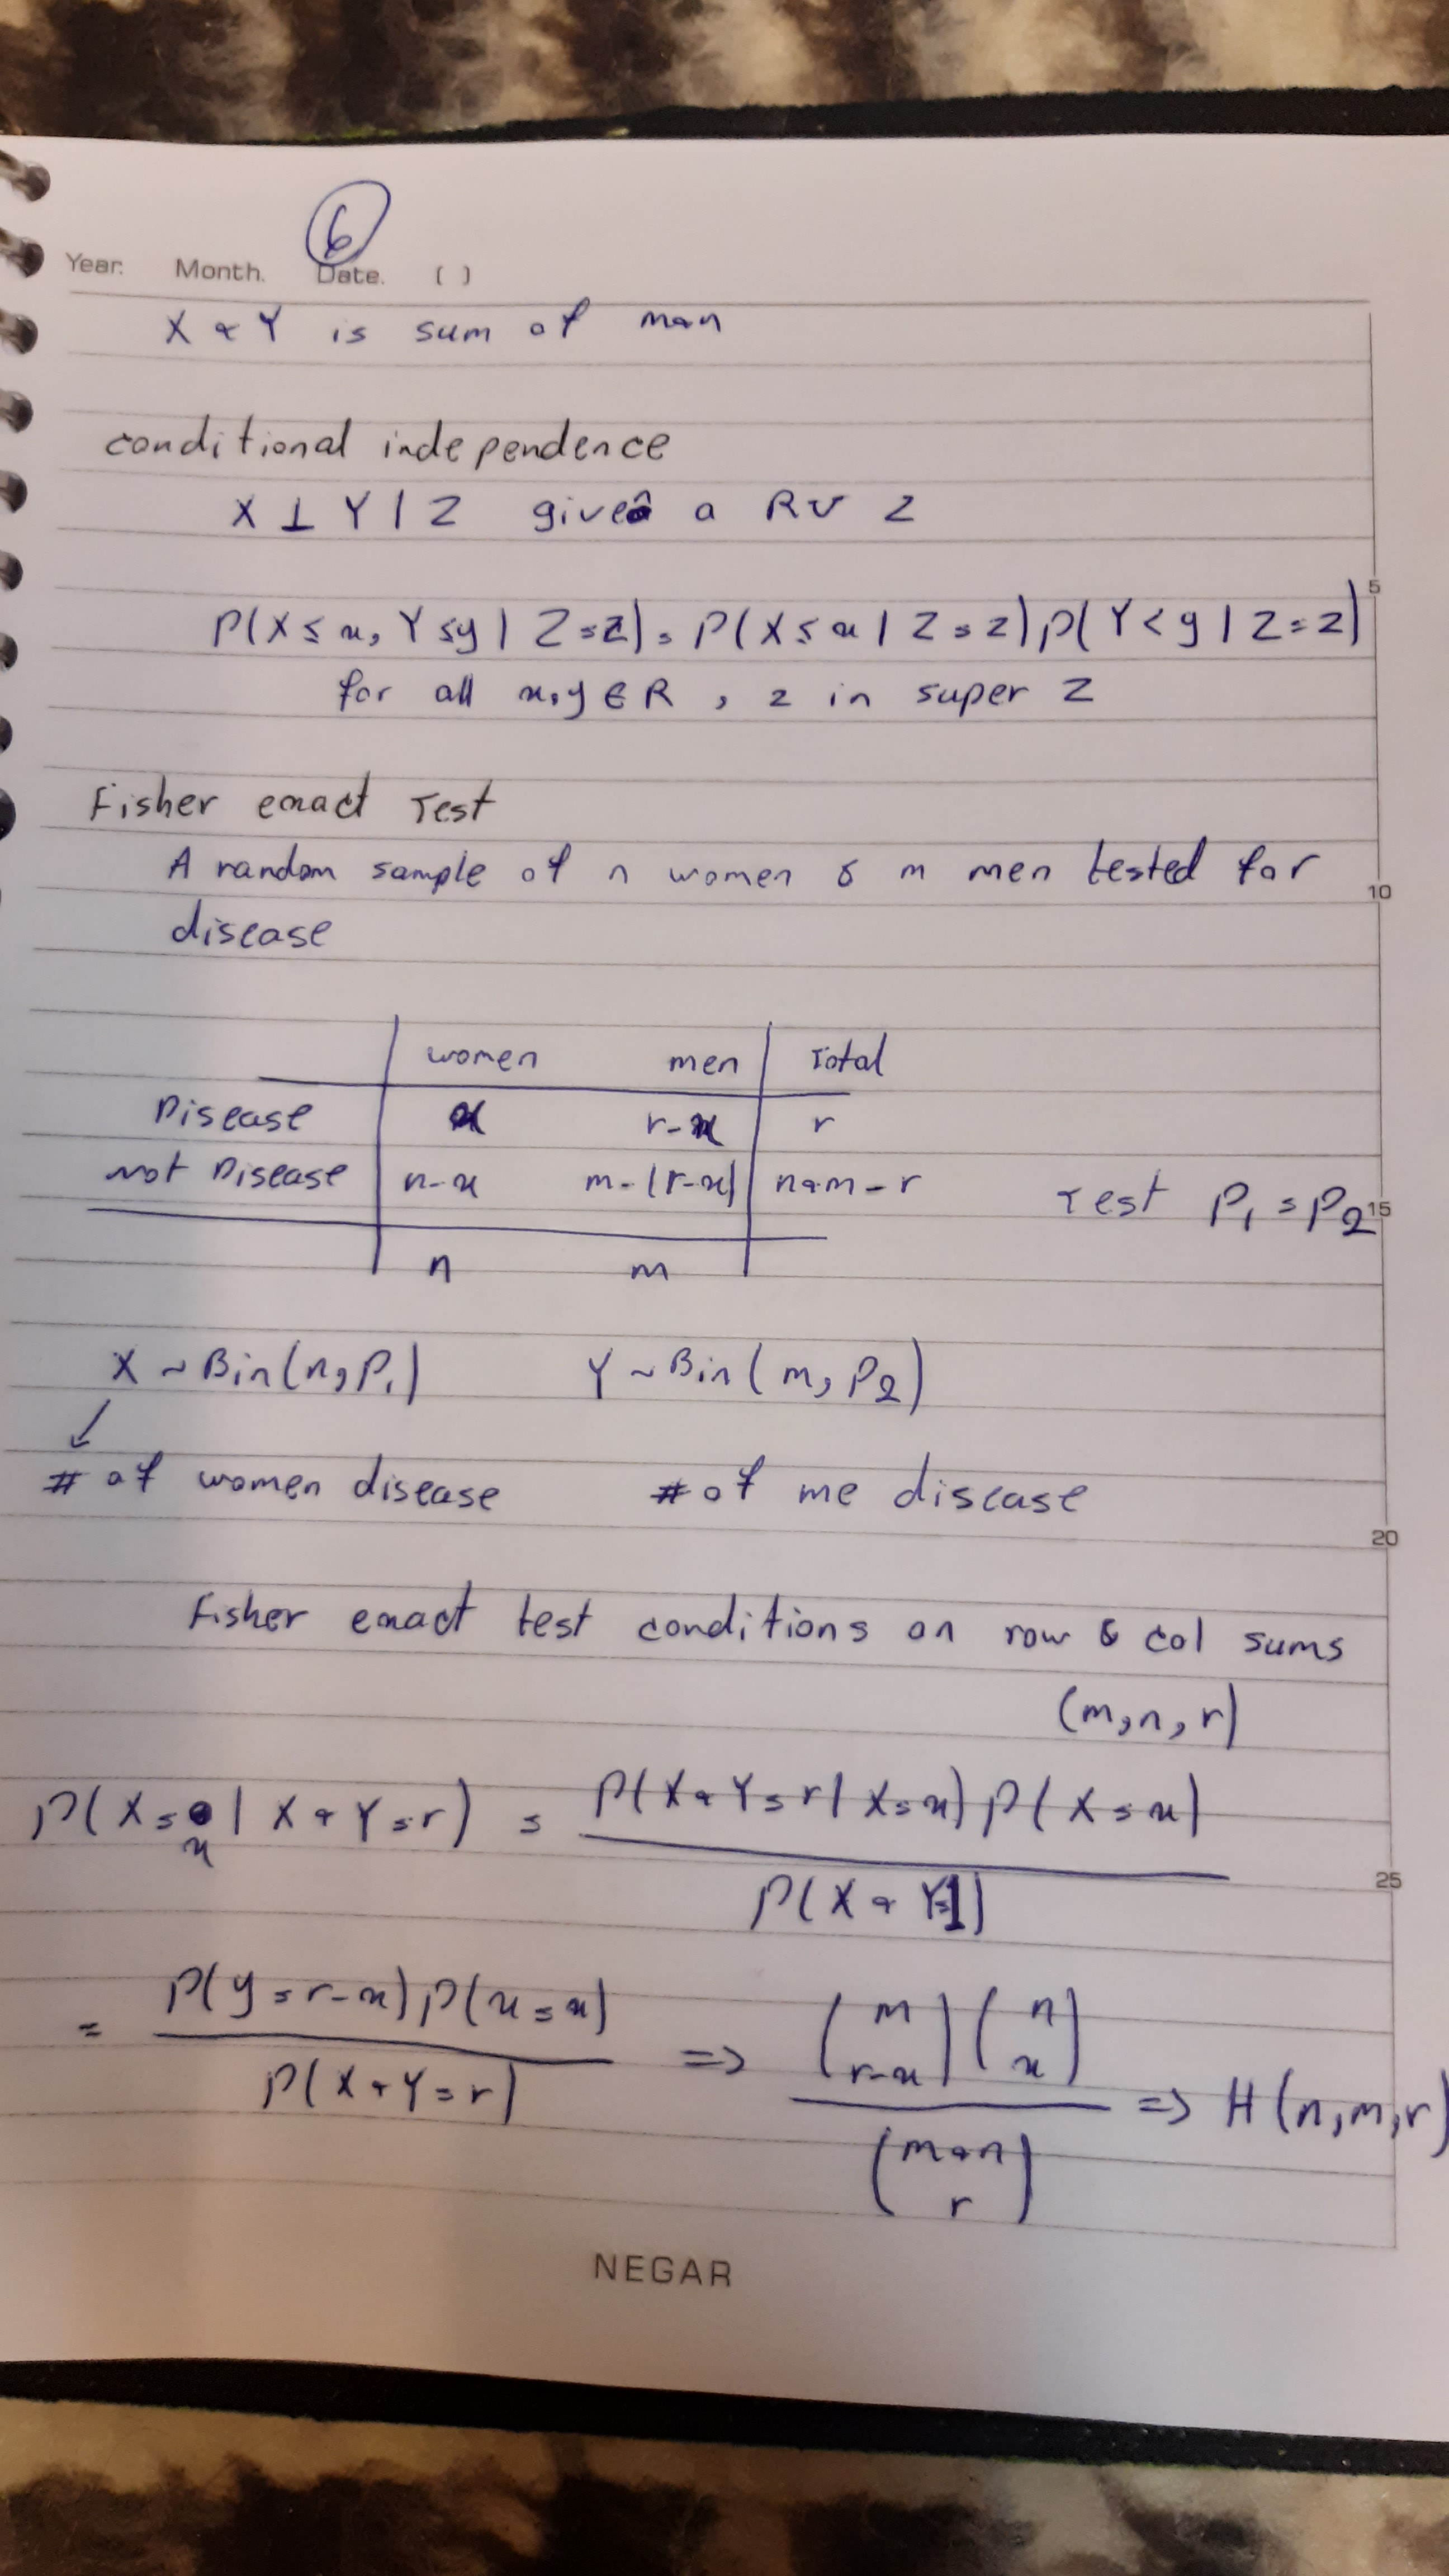 6
Year. Month. Date. ( )
X + Y is sum of m+n
conditional independence
X ⊥ Y | Z given a RV Z
5
P(X ≤ x, Y ≤ y | Z = z) = P(X ≤ x | Z = z) P(Y < y | Z = z)
for all x, y ∈ R, z in super Z
Fisher exact Test
A random sample of n women & m men tested for
10
disease
women men Total
Disease x r-x r
not Disease n-x m-(r-x) n+m-r
Test P₁ = P₂
15
n m
X ~ Bin(n, P₁) Y ~ Bin(m, P₂)
↓
# of women disease # of me disease
20
Fisher exact test conditions on row & col sums
(m, n, r)
P(X = x | X + Y = r) = P(X + Y = r | X = x) P(X = x)
25
P(X + Y=1)
= P(y = r-x) P(x = x) / P(X + Y = r) => (m r-x) (n x) / (m+n r) => H(n, m, r)
NEGAR